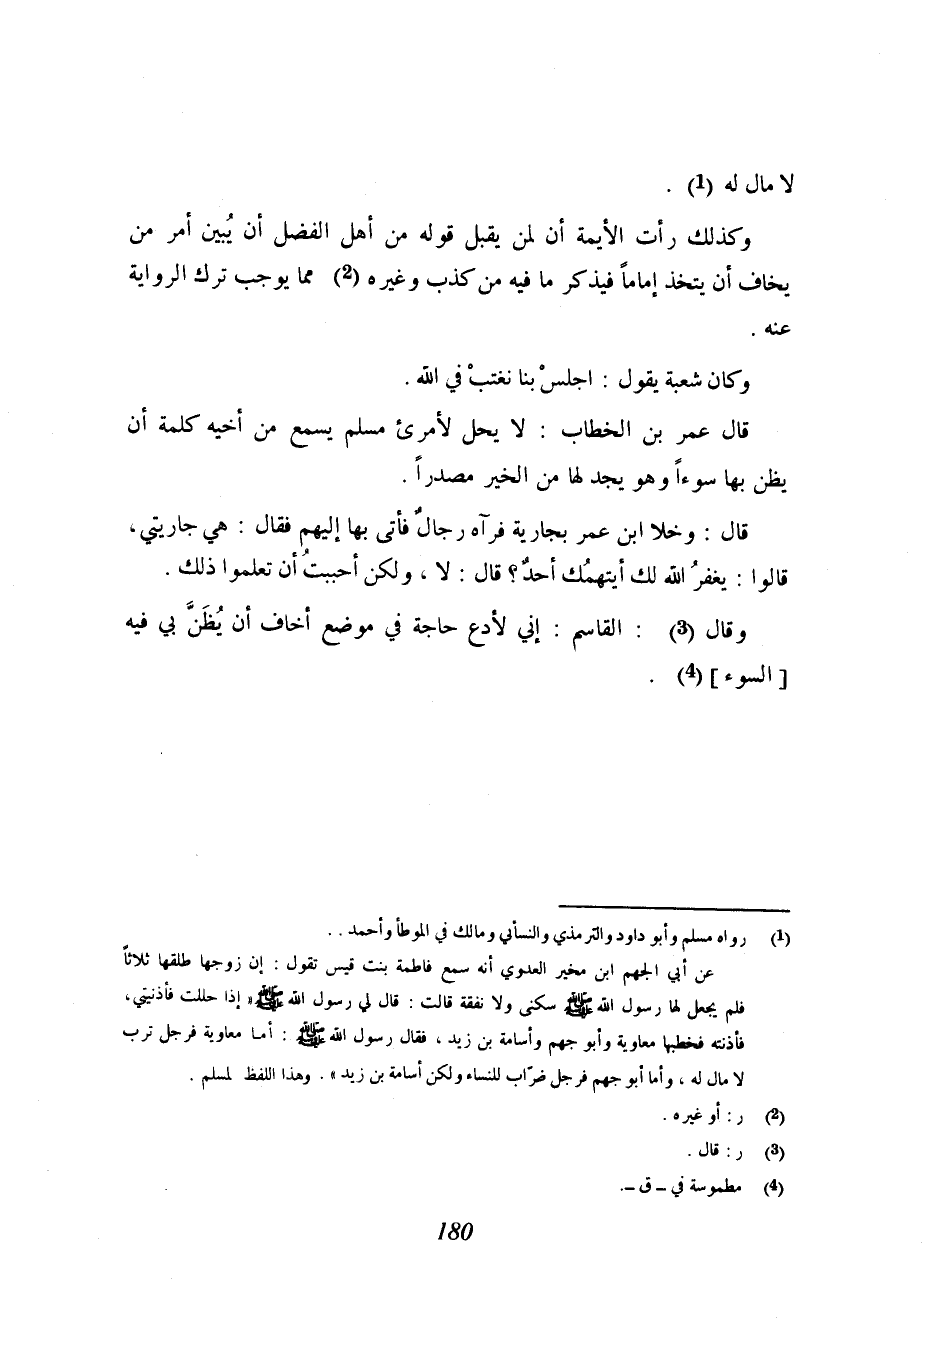 لا مال له (1) .
وكذلك رأت الأيمة أن لمن يقبل قوله من أهل الفضل أن يُبين أمر من
يخاف أن يتخذ إماماً فيذكر ما فيه من كذب وغيره (2) مما يوجب ترك الرواية
عنه .
وكان شعبة يقول : اجلسْ بنا نغتبْ في الله .
قال عمر بن الخطاب : لا يحل لأمرئ مسلم يسمع من أخيه كلمة أن
يظن بها سوءاً وهو يجد لها من الخير مصدراً .
قال : وخلا ابن عمر بجارية فرآه رجالٌ فأتى بها إليهم فقال : هي جاريتي ،
قالوا : يغفرُ الله لك أيتهمُك أحدٌ ؟ قال : لا ، ولكن أحببتُ أن تعلموا ذلك .
وقال (3) : القاسم : إني لأدع حاجة في موضع أخاف أن يُظَنَّ بي فيه
[ السوء ] (4) .
(1) رواه مسلم وأبو داود والترمذي والنسائي ومالك في الموطأ وأحمد . .
عن أبي الجهم ابن مخير العدوي أنه سمع فاطمة بنت قيس تقول : إن زوجها طلقها ثلاثاً
فلم يجعل لها رسول الله ﷺ سكنى ولا نفقة قالت : قال لي رسول الله ﷺ « إذا حللت فأذنيتي ،
فأذنته فخطبها معاوية وأبو جهم وأسامة بن زيد ، فقال رسول الله ﷺ : أما معاوية فرجل ترب
لا مال له ، وأما أبو جهم فرجل ضرّاب للنساء ولكن أسامة بن زيد » . وهذا اللفظ لمسلم .
(2) ر : أو غيره .
(3) ر : قال .
(4) مطموسة في – ق –.
180